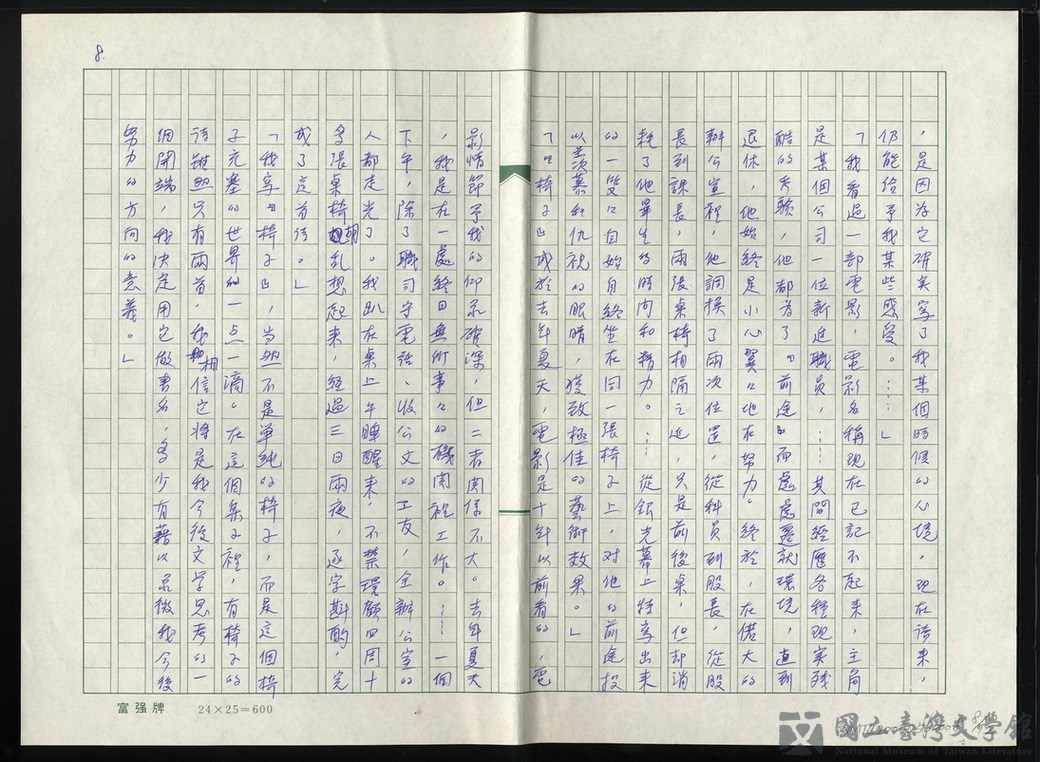 8.
，是因为它确实写了我某個时候的心境，现在讀来，
仍能给予我某些感受。……」
「我看過一部電影，電影名稱现在已記不起来，主角
是某個公司一位新進職員，……其間經歷各種现实残
酷的考驗，他都为了『前途』而處處遷就環境，直到
退休，他始終是小心翼々地在努力。終於，在偌大的
辦公室裡，他調換了兩次位置，從科員到股長，從股
長到課長，兩張桌椅相隔之近，只是前後桌，但却消
耗了他畢生的時间和精力。……從銀光幕上特写出来
的一雙々自始自終坐在同一張椅子上，对他的前途投
以羡慕和仇視的眼睛，獲致極佳的藝術效果。」
「『椅子』成於去年夏天，電影是十年以前看的，電
影情節予我的印象確深，但二者関係不大。去年夏天
，我是在一處終日無所事々的機関裡工作。……一個
下午，除了職司守電話、收公文的工友，全辦公室的
人都走光了。我趴在桌上午睡醒来，不禁環顧四周十
多張桌椅胡乱想起来，經過三日兩夜，逐字斟酌，完
成了这首诗。」
「我寫『椅子』，当然不是單純的椅子，而是這個椅
子充塞的世界的一点一滴。在這個集子裡，有椅子的
诗雖然只有兩首，我相信它將是我今後文学思考的一
個開端，我決定用它做書名，多少有藉以象徵我今後
努力的方向的意義。」
富强牌 24×25=600
國立臺灣文學館
National Museum of Taiwan Literature